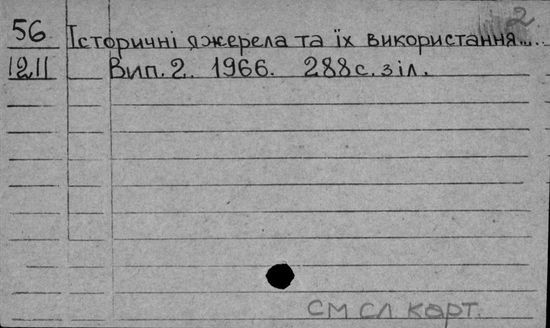 2
56 Історичні джерела та їх використання...
1211 Вип. 2. 1966. 288с. з іл.
см сл карт.